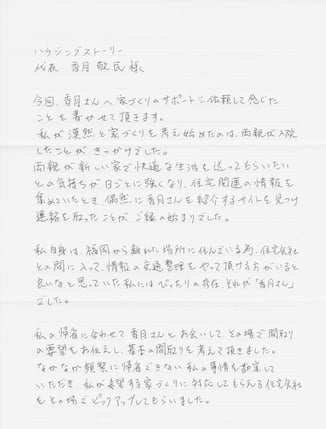 ハウジングストーリー
代表 香月 敬民 様
今回、香月さんへ家づくりのサポートを依頼して感じた
ことを書かせて頂きます。
私が漠然と家づくりを考え始めたのは、両親が入院
したことがきっかけでした。
両親が新しい家で快適な生活を送ってもらいたい
との気持ちが日ごとに強くなり、住宅関連の情報を
集めていたとき、偶然に香月さんを紹介するサイトを見つけ
連絡を取ったことがご縁の始まりでした。
私自身は、福岡から離れた場所に住んでいる為、住宅会社
との間に入って、情報の交通整理をやって頂ける方がいると
良いなと思っていた私にはぴったりの存在、それが「香月さん」
でした。
私の帰省に合わせて香月さんとお会いして、その場で間取り
の要望をお伝えし、基本の間取りを考えて頂きました。
なかなか頻繁に帰省できない私の事情を勘案して
いただき、私が希望する家づくりに対応してもらえる住宅会社
をその場でピックアップしてもらいました。